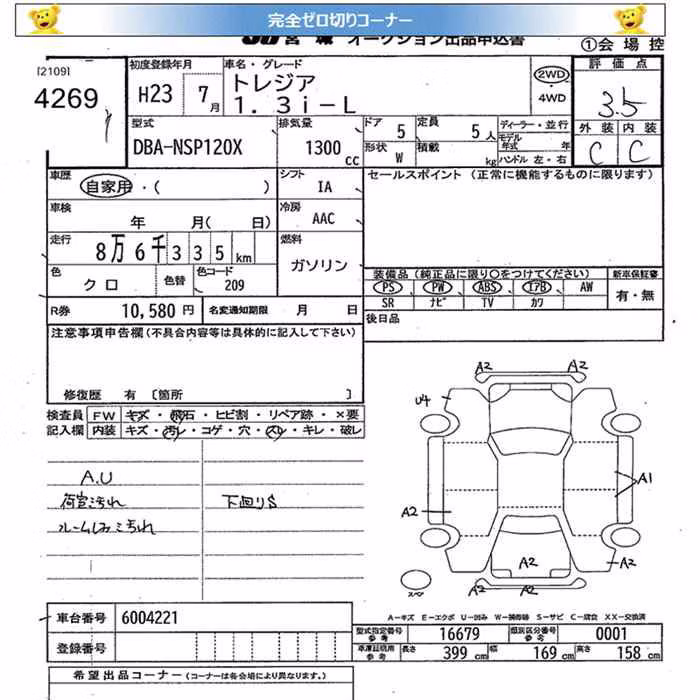 完全ゼロ切りコーナー
宮城 オークション出品申込書
①会場控
[2109]
4269
初度登録年月
H23 7月
車名・グレード
トレジア
1.3i-L
2WD
4WD
評価点
3.5
型式
DBA-NSP120X
排気量
1300cc
ドア 5
定員 5人
形状 W
積載 kg
ディーラー・並行
モデル年式 年
ハンドル 左・右
外装 内装
C C
車歴
自家用・( )
シフト
IA
セールスポイント (正常に機能するものに限ります)
車検
年 月( 日)
冷房
AAC
走行
8万6千335km
燃料
ガソリン
色
クロ
色替
色コード
209
装備品(純正品に限り○をつけてください)
新車保証書
PS PW ABS エアB AW
SR ナビ TV カワ
有・無
R券 10,580円
名変通知期限 月 日
後日品
注意事項申告欄(不具合内容等は具体的に記入して下さい)
修復歴 有 [箇所 ]
検査員記入欄
FW キズ・飛石・ヒビ割・リペア跡・×要
内装 キズ・汚レ・コゲ・穴・スレ・キレ・破レ
A.U
荷室汚れ
下回りS
ルームしみこ汚れ
A2 A2
U4
A1
A2
A2
A2
A2 A2
スペア
A-キズ E-エクボ U-凹み W-補修跡 S-サビ C-腐食 XX-交換済
車台番号 6004221
登録番号
型式指定番号 参考 16679
類別区分番号 参考 0001
車庫証明用 参考 長さ 399cm 幅 169cm 高さ 158cm
希望出品コーナー(コーナーは各会場により異なります。)